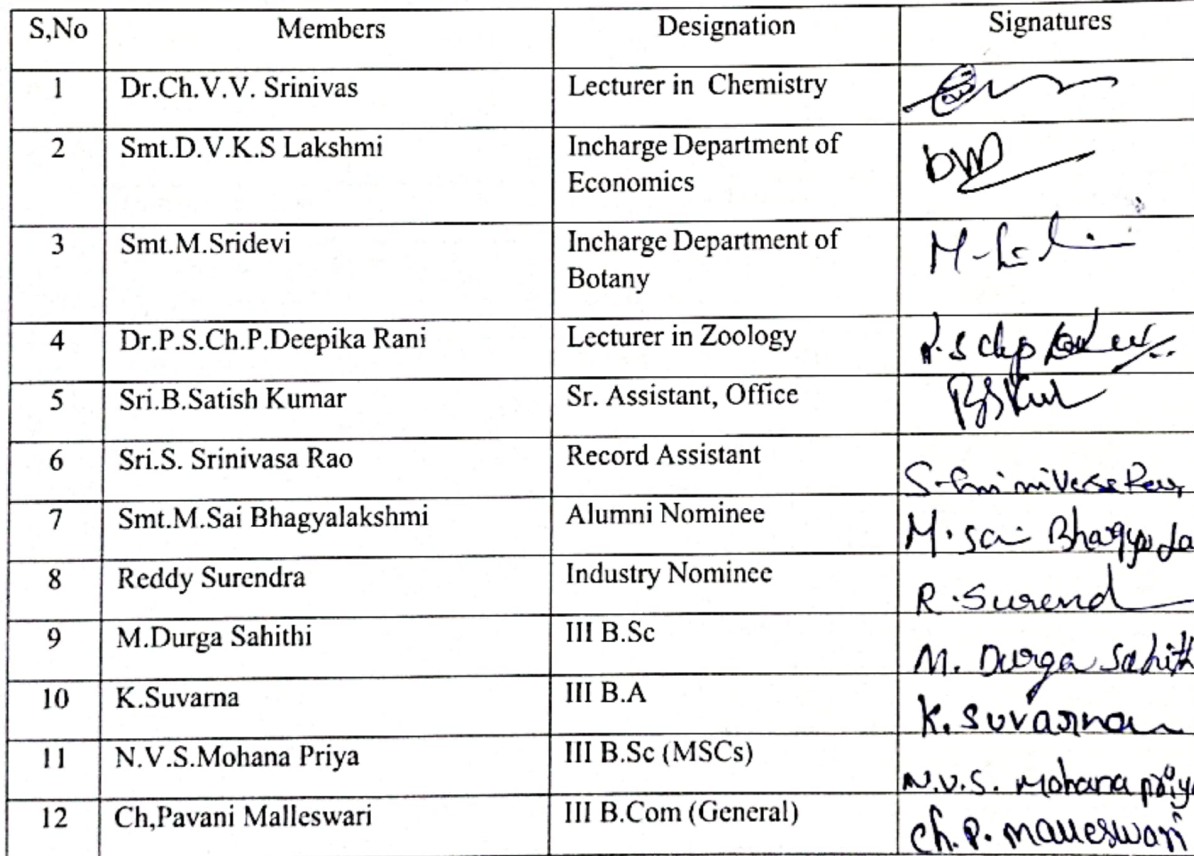 S,No Members Designation Signatures
1 Dr.Ch.V.V. Srinivas Lecturer in Chemistry
2 Smt.D.V.K.S Lakshmi Incharge Department of
Economics
3 Smt.M.Sridevi Incharge Department of
Botany
4 Dr.P.S.Ch.P.Deepika Rani Lecturer in Zoology
5 Sri.B.Satish Kumar Sr. Assistant, Office
6 Sri.S. Srinivasa Rao Record Assistant
7 Smt.M.Sai Bhagyalakshmi Alumni Nominee M. Sai
8 Reddy Surendra Industry Nominee R. Surend
9 M.Durga Sahithi III B.Sc M. Durga Sahith
10 K.Suvarna III B.A K. Suvarna
11 N.V.S.Mohana Priya III B.Sc (MSCs) N.V.S. Mohana priya
12 Ch,Pavani Malleswari III B.Com (General) Ch. P. Malleswari